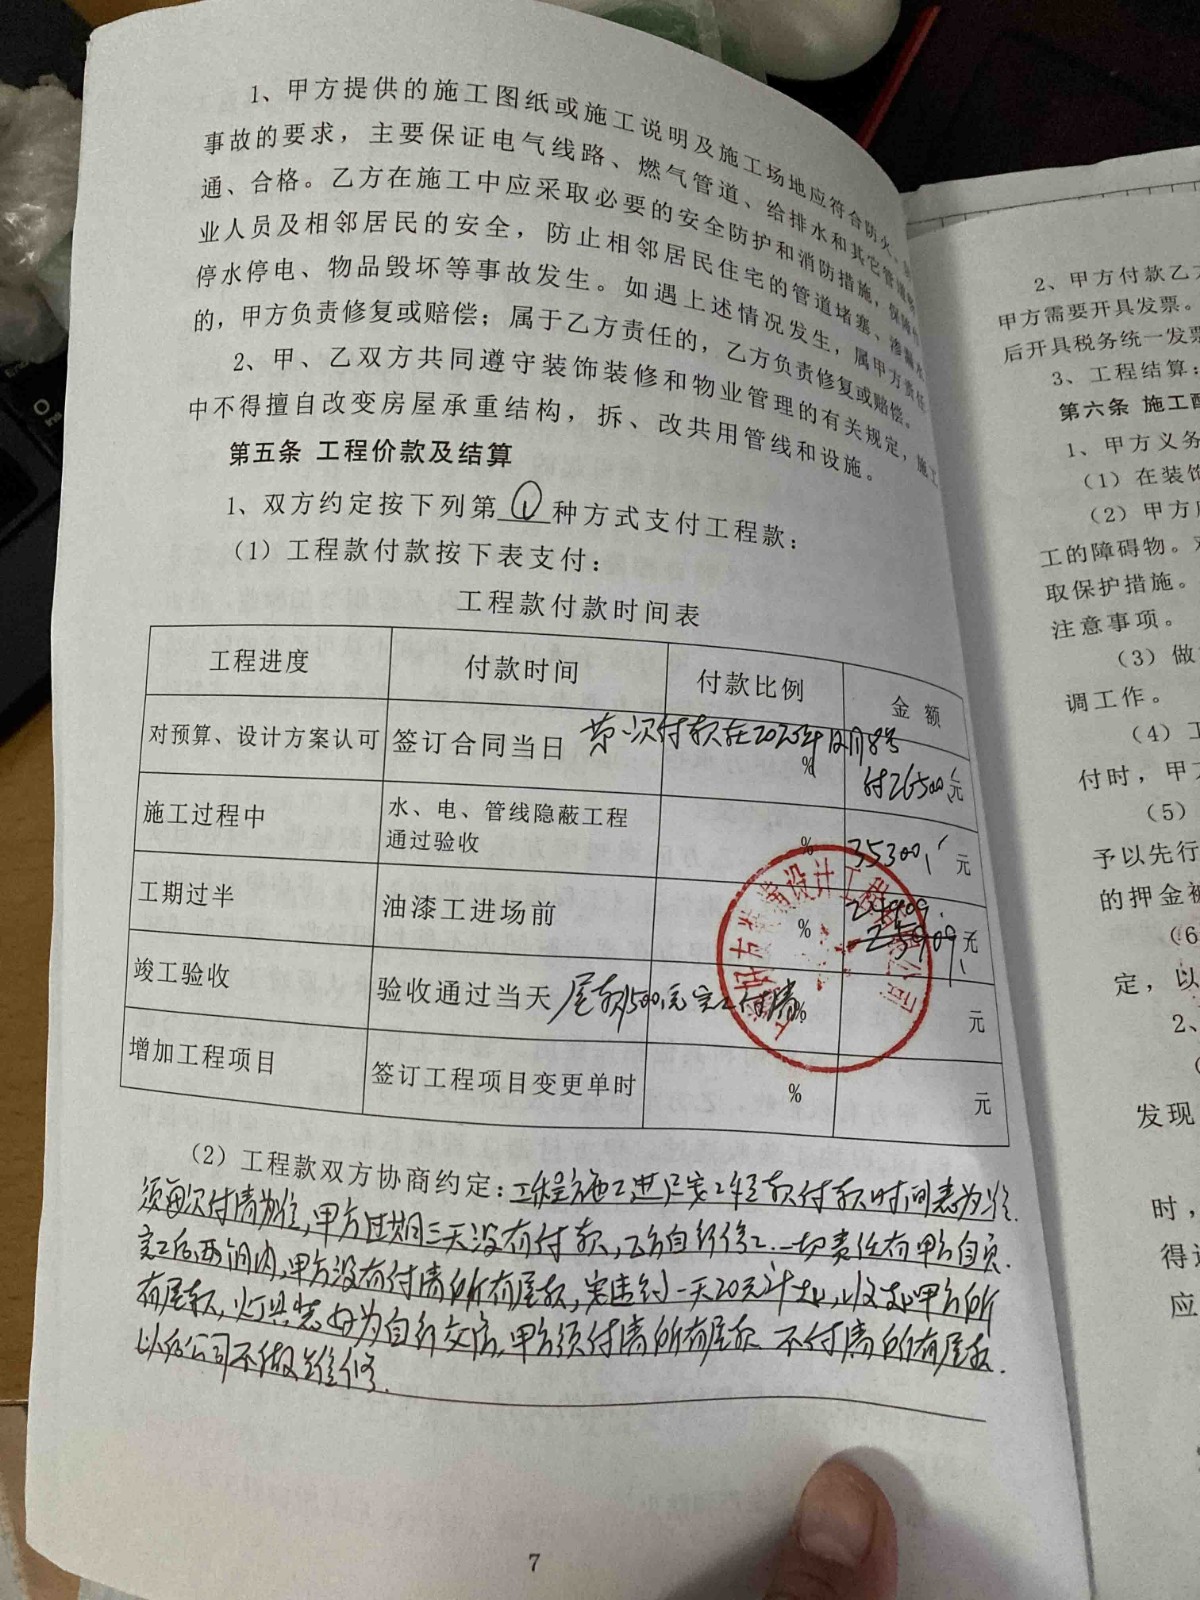 1、甲方提供的施工图纸或施工说明及施工场地应符合防火、
事故的要求，主要保证电气线路、燃气管道、给排水和其它管道
通、合格。乙方在施工中应采取必要的安全防护和消防措施，保障
业人员及相邻居民的安全，防止相邻居民住宅的管道堵塞、渗漏
停水停电、物品毁坏等事故发生。如遇上述情况发生，属甲方责任
的，甲方负责修复或赔偿；属于乙方责任的，乙方负责修复或赔偿。
2、甲、乙双方共同遵守装饰装修和物业管理的有关规定，施工
中不得擅自改变房屋承重结构，拆、改共用管线和设施。
第五条 工程价款及结算
1、双方约定按下列第 ① 种方式支付工程款：
（1）工程款付款按下表支付：
工程款付款时间表
工程进度 付款时间 付款比例 金额
对预算、设计方案认可 签订合同当日 第一次付款在2025年12月8号 % 付26500元
施工过程中 水、电、管线隐蔽工程 % 35300 元
通过验收
工期过半 油漆工进场前 % 元
竣工验收 验收通过当天 尾款1500元完工付清 % 元
增加工程项目 签订工程项目变更单时 % 元
（2）工程款双方协商约定：工程施工进度按工程款付款时间表为准.
须每次付清为准，甲方过期三天没有付款，乙方自行停工.一切责任有甲方自负.
完工后两个月内，甲方没有付清所有尾款，按违约一天20元计
有尾款，灯具装好为自行交房，甲方须付清所有尾款 不付清所有尾款.
以后公司不做维修.
7
2、甲方付款乙方
甲方需要开具发票。
后开具税务统一发票
3、工程结算：
第六条 施工配
1、甲方义务
（1）在装饰
（2）甲方应
工的障碍物。对
取保护措施。
注意事项。
（3）做
调工作。
（4）工
付时，甲方
（5）
予以先行
的押金被
（6
定，以
2、
发现
时，
得
应